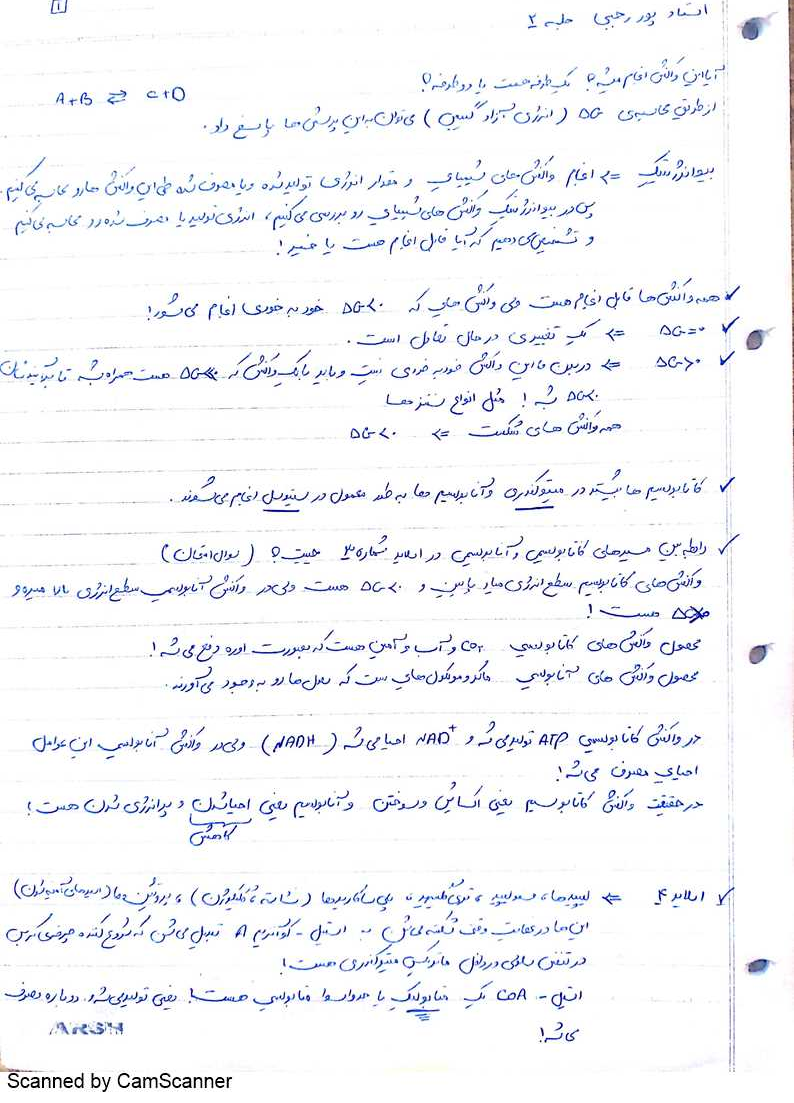 1
استاد پور رجبی جلسه 2
آیا این واکنش انجام میشه؟ یک طرفه هست یا دو طرفه؟
A+B ⇌ C+D
از طریق محاسبه‌ی ΔG (انرژی آزاد گیبس) می‌توان به این پرسش ها پاسخ داد.
بیوانرژتیک => انجام واکنش های شیمیایی و مقدار انرژی تولید شده و یا مصرف شده طی این واکنش ها رو محاسبه می‌کنیم.
پس در بیوانرژتیک واکنش های شیمیایی رو بررسی می‌کنیم، انرژی تولید یا مصرف شده رو محاسبه می‌کنیم
و تشخیص می‌دهیم که آیا قابل انجام هست یا خیر!
✓ همه واکنش ها قابل انجام هست ولی واکنش هایی که ΔG<0 خود به خودی انجام می‌شود!
✓ ΔG=0 => یک تغییری در حال تعادل است.
✓ ΔG>0 => در بدن ما این واکنش خود به خودی نیست و باید با یک واکنش که ΔG<<0 هست همراه بشه تا برآیندشان
ΔG<0 بشه! مثل انواع سنتزها
همه واکنش های شکست => ΔG<0
✓ کاتابولیسم ها بیشتر در میتوکندری و آنابولیسم ها به طور معمول در سیتوسل انجام می‌شوند.
✓ رابطه بین مسیرهای کاتابولیسمی و آنابولیسمی در اسلاید شماره 3 چیست؟ (سوال امتحان)
واکنش های کاتابولیسم سطح انرژی میاد پایین و ΔG<0 هست ولی در واکنش آنابولیسمی سطح انرژی بالا میره و
ΔG>0 هست!
محصول واکنش های کاتابولیسمی CO₂ و آب و آمین هست که بصورت اوره دفع می‌شه!
محصول واکنش های آنابولیسمی ماکرومولکول هایی ست که سلول ها رو به وجود می‌آورند.
در واکنش کاتابولیسمی ATP تولید می‌شه و NAD⁺ احیا می‌شه (NADH) ولی در واکنش آنابولیسمی این عوامل
احیایی مصرف می‌شه!
در حقیقت واکنش کاتابولیسم یعنی اکسایش و سوختن و آنابولیسم یعنی احیا شدن و پر انرژی شدن هست!
کاهش
✓ اسلاید 4 => لیپیدها، تری گلیسیرید، پلی ساکاریدها (نشاسته، گلیکوژن)، پروتئین ها (اسیدهای آمینه شون)
این ها در نهایت وقتی شکسته می‌شن به استیل - کوآنزیم A تبدیل می‌شن که شروع کننده چرخه‌ی کربس
در تنفس سلولی در داخل ماتریکس میتوکندری هست!
استیل - CoA یک متابولیک یا حدواسط متابولیسمی هست! یعنی تولید می‌شود دوباره مصرف
می‌شه!
ARSH
Scanned by CamScanner